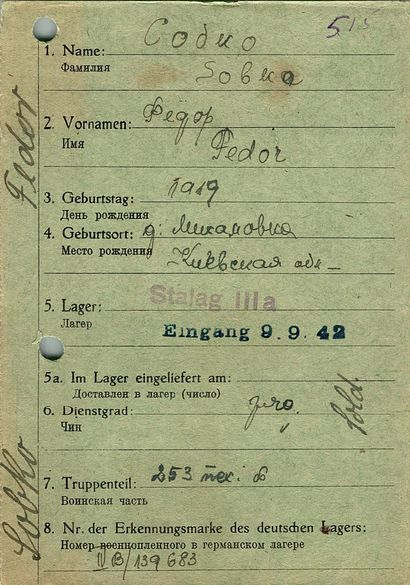 51
Собко
1. Name:
Фамилия
Sobko
2. Vornamen: Федор
Имя
Fedor
3. Geburtstag: 1919
День рождения
4. Geburtsort: д. Михаловка
Место рождения
Киевская обл
5. Lager: Stalag IIIa
Лагер
Eingang 9.9.42
5a. Im Lager eingeliefert am:
Доставлен в лагер (число)
6. Dienstgrad:
Чин
Sold.
7. Truppenteil: 253
Воинская часть
8. Nr. der Erkennungsmarke des deutschen Lagers:
Номер военнопленного в германском лагере
IV B/139683
Sobko Fedor